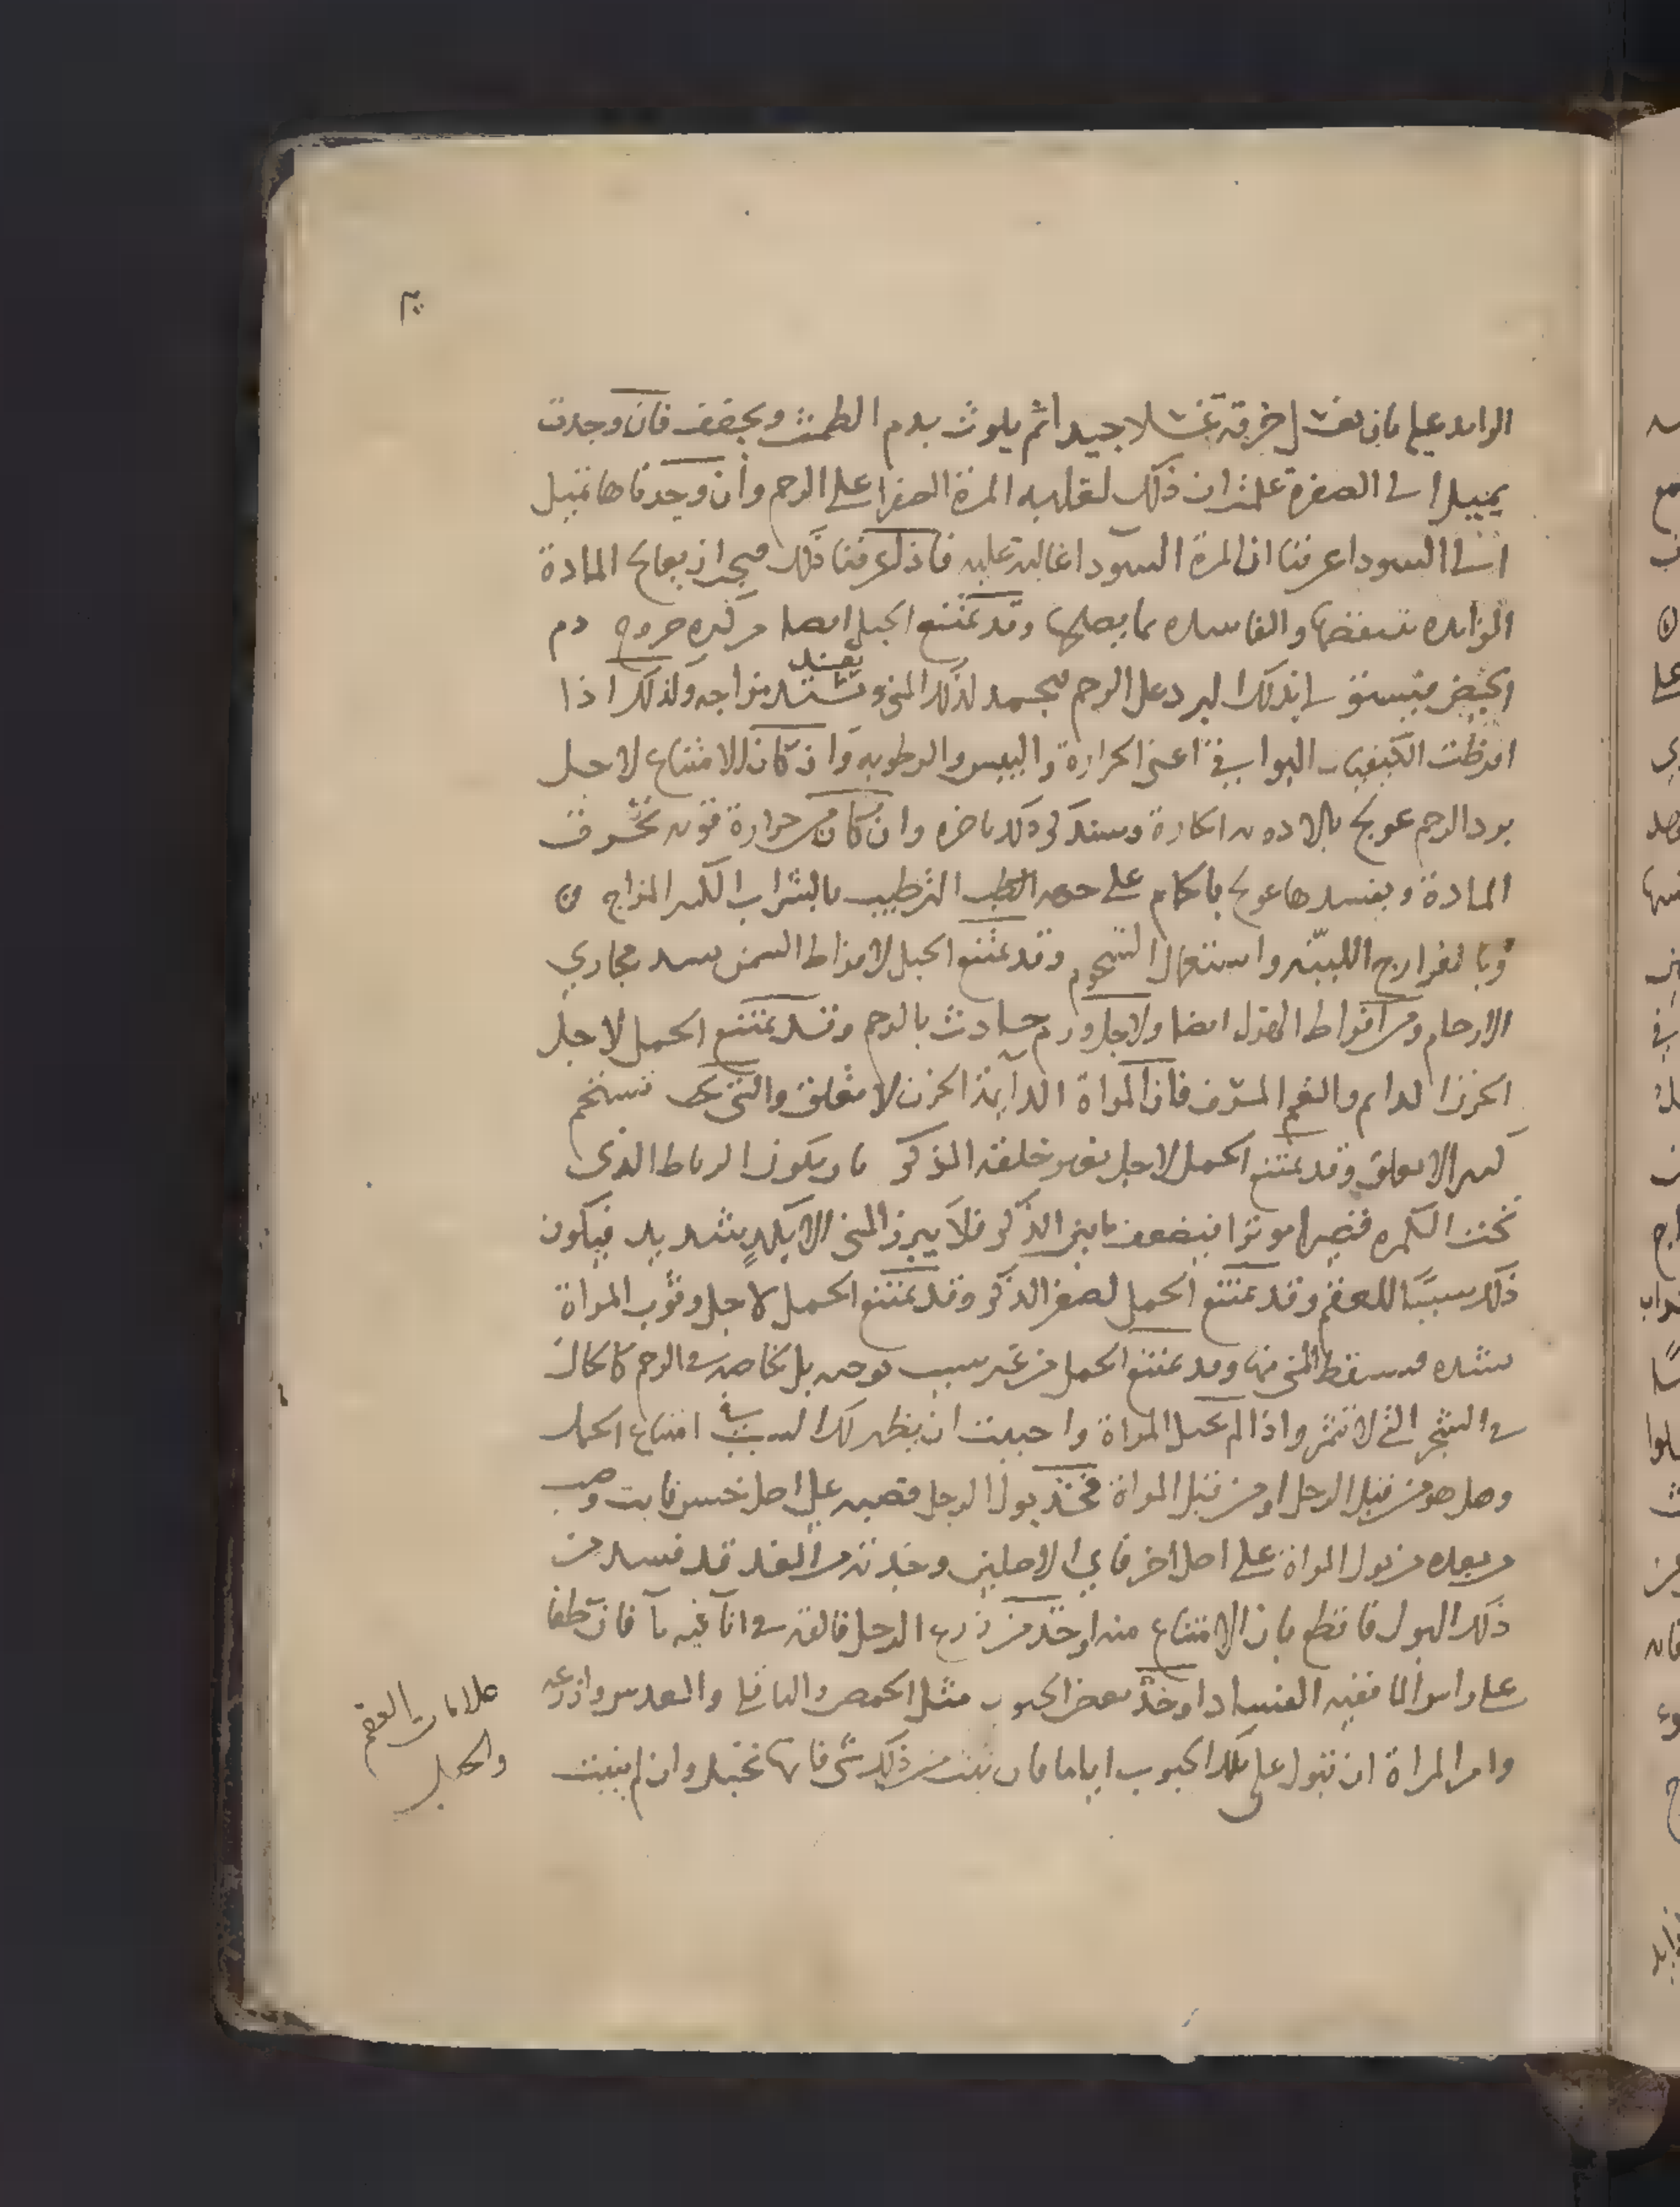 الزايد عليه بان تغسل خرقة غسلا جيدا ثم يلوث بدم الطمث ويجفف فان وجدت
يميل الى الصفرة علمت ان ذلك لغلبه المرة الصفرا على الرحم وان وجدناها تميل
الى السودا عرفنا ان المرة السودا غالبة عليه فاذا عرفنا ذلك فيجب ان يعالج المادة
الزايده بنفضها والفاسده بما يصلحها وقد يمتنع الحبل ايضا من كثره خروج دم
الحيض فيستولى بذلك البرد على الرحم فيجمد لذلك المنى ويفسد مزاجه وكذلك اذا
افرطت الكيفيات البواقي اعنى الحرارة واليبس والرطوبه وان كان الامتناع لاجل
برد الرحم عولج بالادويه الحارة وسنذكر ذلك باخره وان كان من حرارة قويه تحرق
المادة ويفسدها عولج بالحمام على جهة الترطيب بالشراب الكثير المزاج
وبالفراريج اللبنيه واستعمال الشحوم وقد يمتنع الحبل لافراط السمن بسد مجاري
الارحام ومن افراط الهزل ايضا ولاجل ورم حادث بالرحم وقد يمتنع الحمل لاجل
الحزن الدايم والغم المسرف فان المراة الدايمة الحزن لا تعلق والتي تضحك
كثيرا تعلق وقد يمتنع الحمل لاجل تعويج خلقة الذكر بان يكون الرباط الذى
تحت الكمره قصيرا موترا فيضعف مابين الذكر فلا يبرز المنى الا بكد شديد فيكون
ذلك سببًا للعقم وقد يمتنع الحمل لصغر الذكر وقد يمتنع الحمل لاجل وثوب المراة
بشده فيسقط المنى منها وقد يمتنع الحمل من غير سبب يوجبه بل بخاصه فى الرحم كالحال
فى الشجر التى لا تثمر واذا لم تحبل المراة واحببت ان يظهر لك السبب فى امتناع الحمل
وهل هو من قبل الرجل او من قبل المراة فخذ بول الرجل فصبه على اصل خس نابت وصب
من بعده من بول المراة على اصل اخر فاي الاصلين وجدته من الغد قد فسد من
ذلك البول فاقطع بان الامتناع منه او خذ من زرع الرجل فالقه فى انآ فيه مآ فان طفا
على راس المآ ففيه الفساد او خذ بعض الحبوب مثل الحمص والباقلى والعدس وازرعه
وامر المراة ان تبول على تلك الحبوب اياما فان نبت من ذلك شى فانها تحبل وان لم ينبت
علامات العقم
والحبل